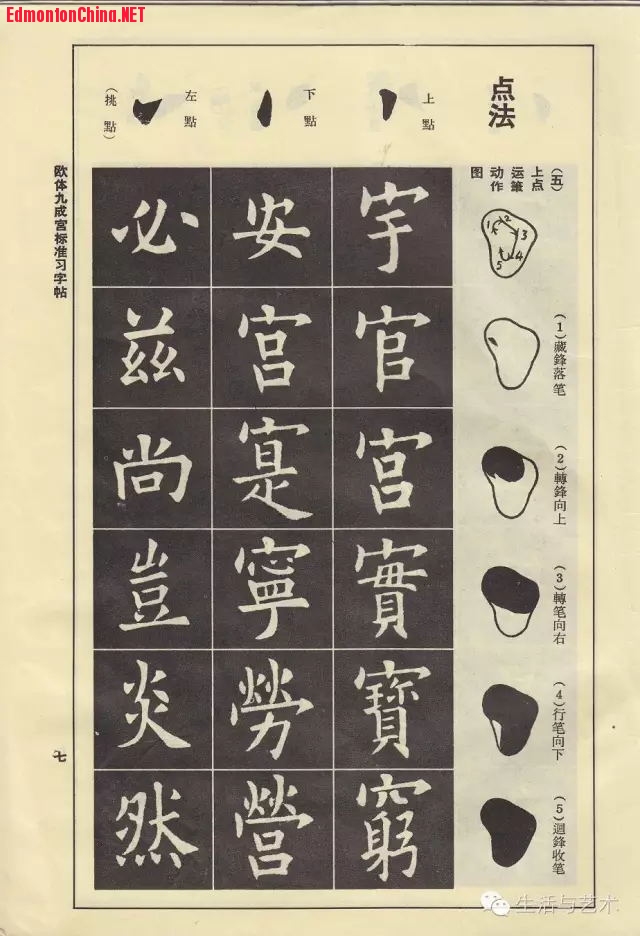 EdmontonChina.NET
点法
上點
下點
左點
（挑點）
（五）
上点
运筆
动作
图
1 2 3 4 5
（1）藏鋒落笔
（2）轉鋒向上
（3）轉笔向右
（4）行笔向下
（5）迴鋒收笔
宇官宫實寶窮
安宫寔寧勞營
必兹尚豈炎然
欧体九成宫标准习字帖
七
生活与艺术